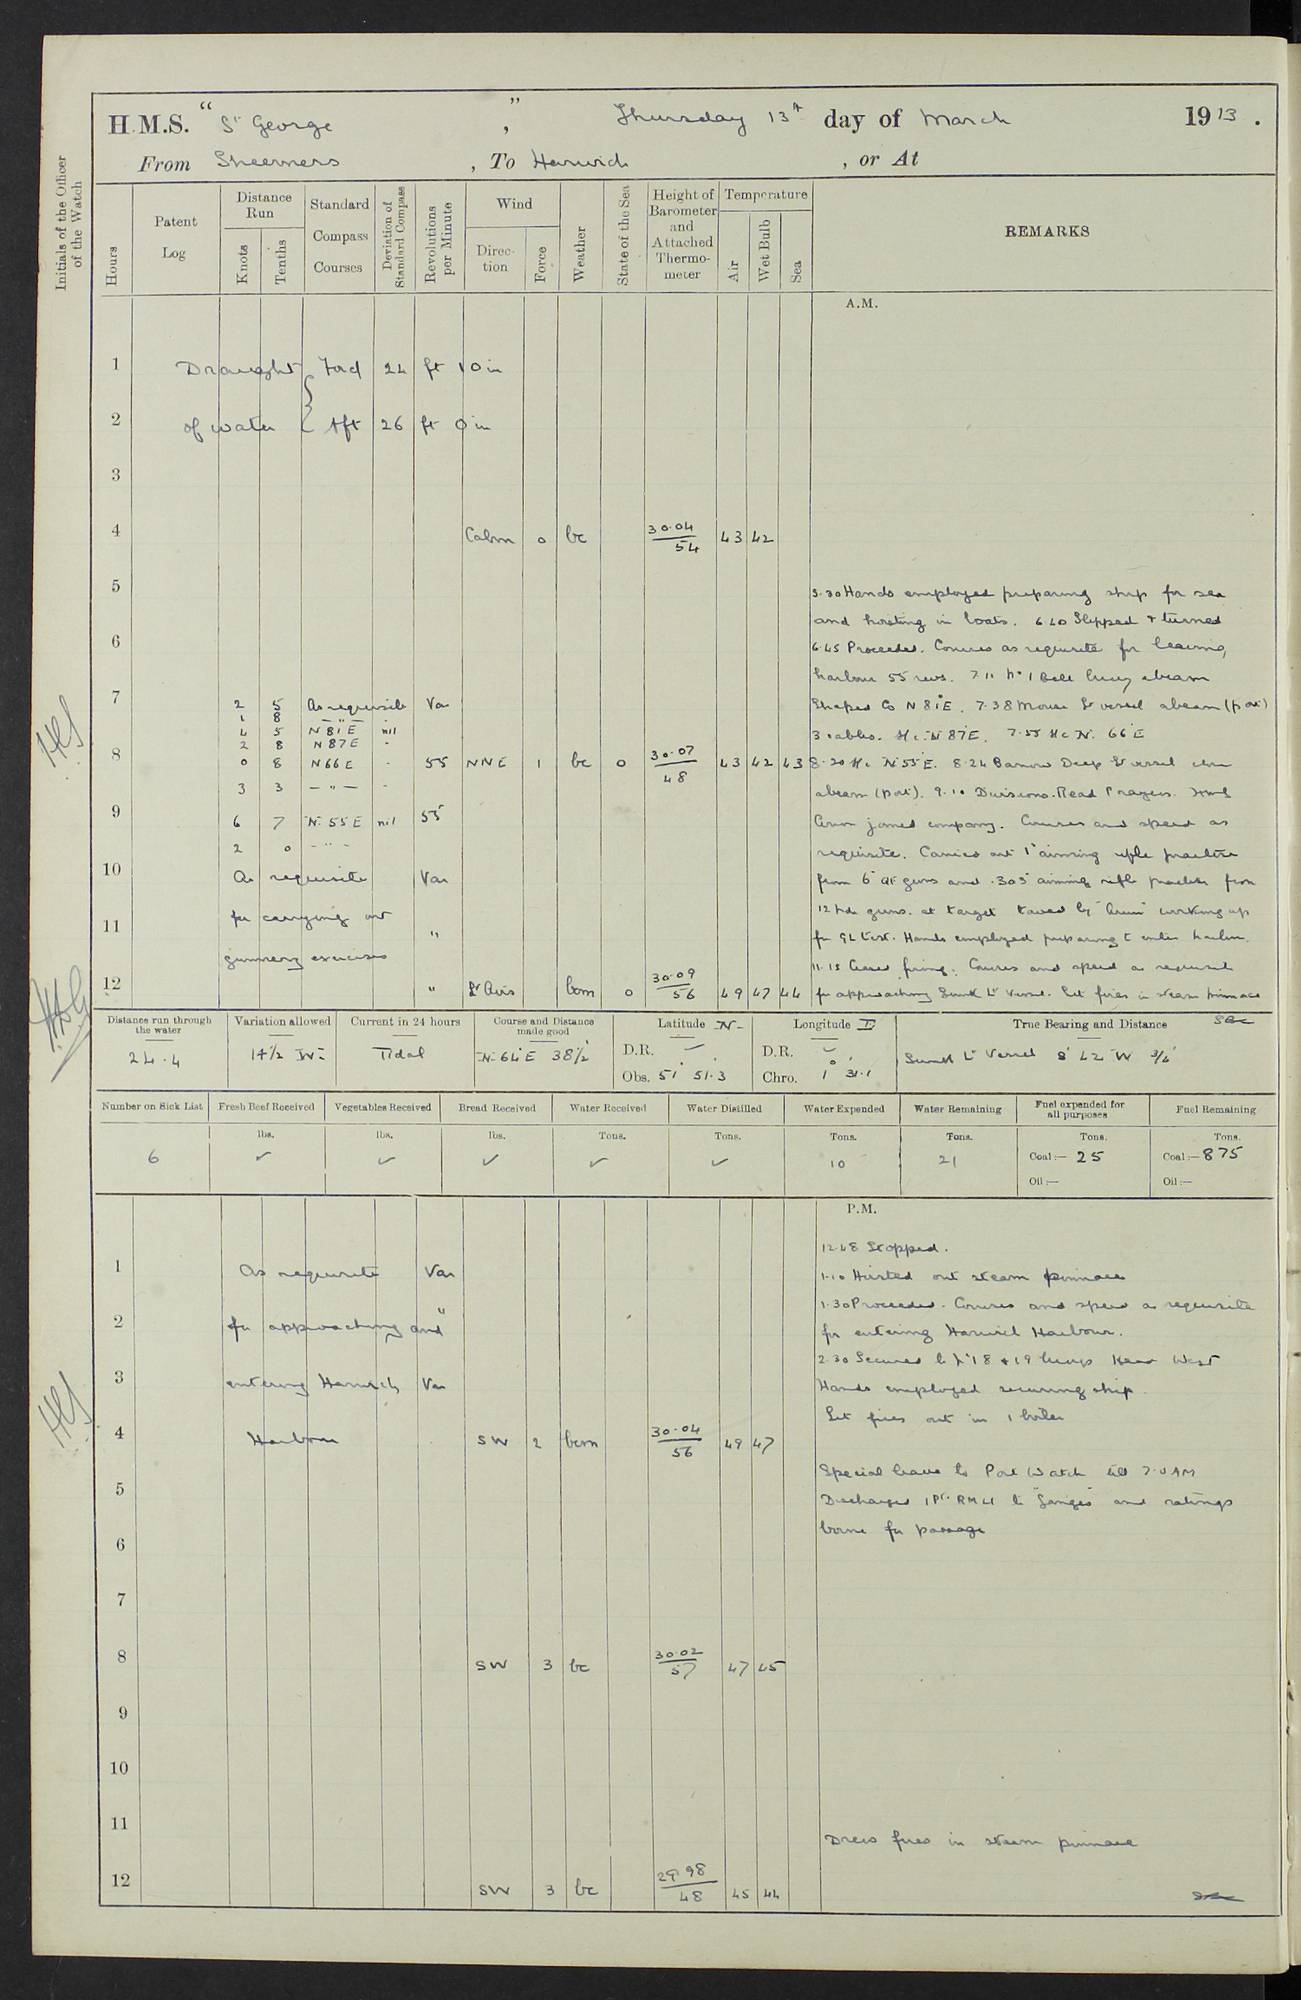 H.M.S. "St George", Thursday 13th day of March 1913.
From Sheerness, To Harwich, or At
Initials of the Officer of the Watch
Hours
Patent Log
Distance Run
Knots
Tenths
Standard Compass Courses
Deviation of Standard Compass
Revolutions per Minute
Wind
Direction
Force
Weather
State of the Sea
Height of Barometer and Attached Thermometer
Temperature
Air
Wet Bulb
Sea
REMARKS
A.M.
1 Draught { Ford 24 ft 10 in
2 of water { Aft 26 ft 0 in
3
4 Calm 0 bc 30.04 54 43 42
5
5.30 Hands employed preparing ship for sea
and hoisting in boats. 6.40 Slipped & turned
6
6.45 Proceeded. Courses as requisite for leaving
harbour 55 revs. 7.11 No 1 Bell buoy abeam
7 2 5 As requisite Var
1 8 - " -
Shaped Co N 81 E. 7.38 Mouse Lt vessel abeam (port)
4 5 N 81 E nil
2 8 N 87 E "
3 cables. A/c N 87 E. 7.55 A/c N. 66 E
8 0 8 N 66 E - 55 NNE 1 bc 0 30.07 48 43 42 43
8.20 A/c N 55 E. 8.24 Barrow Deep Lt vessel
3 3 - " - -
abeam (port). 9.10 Divisions. Read Prayers. HMS
9 6 7 N 55 E nil 55
joined company. Courses and speed as
2 0 - " -
requisite. Carried out 1" aiming rifle practice
10 As requisite Var
from 6" QF guns and .303" aiming rifle practice from
for carrying out
12 pdr guns. at target towed by working up
11 "
for GL test. Hands employed preparing to enter harbour.
gunnery exercises
11.15 Ceased firing. Courses and speed as requisite
12 " Lt Airs bcm 0 30.09 56 49 47 44
for approaching Sunk Lt Vessel. Lit fires in steam pinnace
Distance run through the water
24.4
Variation allowed
14½ W
Current in 24 hours
Tidal
Course and Distance made good
N 64 E 38½'
Latitude N
D.R. ✓
Obs. 51 51.3
Longitude E
D.R. ✓
Chro. 1 31.1
True Bearing and Distance
Sunk Lt Vessel S 42 W ¾'
Number on Sick List
6
Fresh Beef Received
lbs.
✓
Vegetables Received
lbs.
✓
Bread Received
lbs.
✓
Water Received
Tons.
✓
Water Distilled
Tons.
✓
Water Expended
Tons.
10
Water Remaining
Tons.
21
Fuel expended for all purposes
Tons.
Coal :— 25
Oil :—
Fuel Remaining
Tons.
Coal :— 875
Oil :—
P.M.
12.48 Stopped.
1 As requisite Var
1.10 Hoisted out steam pinnace
1.30 Proceeded. Courses and speed as requisite
2 for approaching and "
for entering Harwich Harbour.
2.30 Secured to No 18 & 19 buoys Head West
3 entering Harwich Var
Hands employed securing ship.
Let fires out in 1 boiler
4 Harbour SW 2 bcm 30.04 56 49 47
Special leave to Port Watch till 7.0 AM
5
Discharged 1 Pte RMLI to "Ganges" and ratings
borne for passage
6
7
8 SW 3 bc 30.02 57 47 45
9
10
11
Drew fires in steam pinnace
12 SW 3 bc 29.98 48 45 44